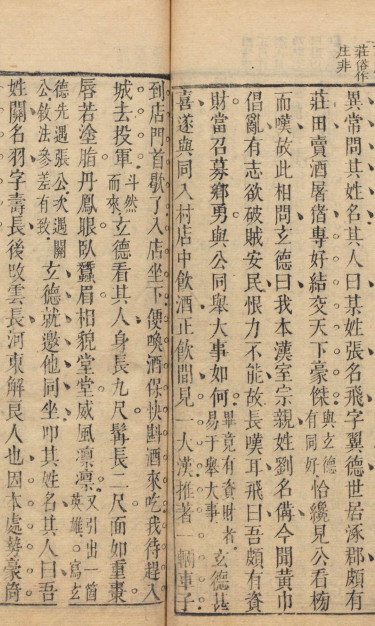 莊俗作
庄非
異常問其姓名其人曰某姓張名飛字翼德世居涿郡頗有
莊田賣酒屠猪專好結交天下豪傑與玄德有同好恰纔見公看榜
而嘆故此相問玄德曰我本漢室宗親姓劉名備今聞黃巾
倡亂有志欲破賊安民恨力不能故長嘆耳飛曰吾頗有資
財當召募鄉勇與公同舉大事如何畢竟有資財者易于舉大事玄德甚
喜遂與同入村店中飲酒正飲間見一大漢推著一輛車子
到店門首歇了入店坐下便喚酒保快斟酒來吃我待趕入
城去投軍斗然而來玄德看其人身長九尺髯長二尺面如重棗
唇若塗脂丹鳳眼臥蠶眉相貌堂堂威風凜凜又引出一箇英雄。寫玄
德先遇張公次遇關公敘法參差有致玄德就邀他同坐叩其姓名其人曰吾
姓關名羽字壽長後改雲長河東解良人也因本處勢豪倚